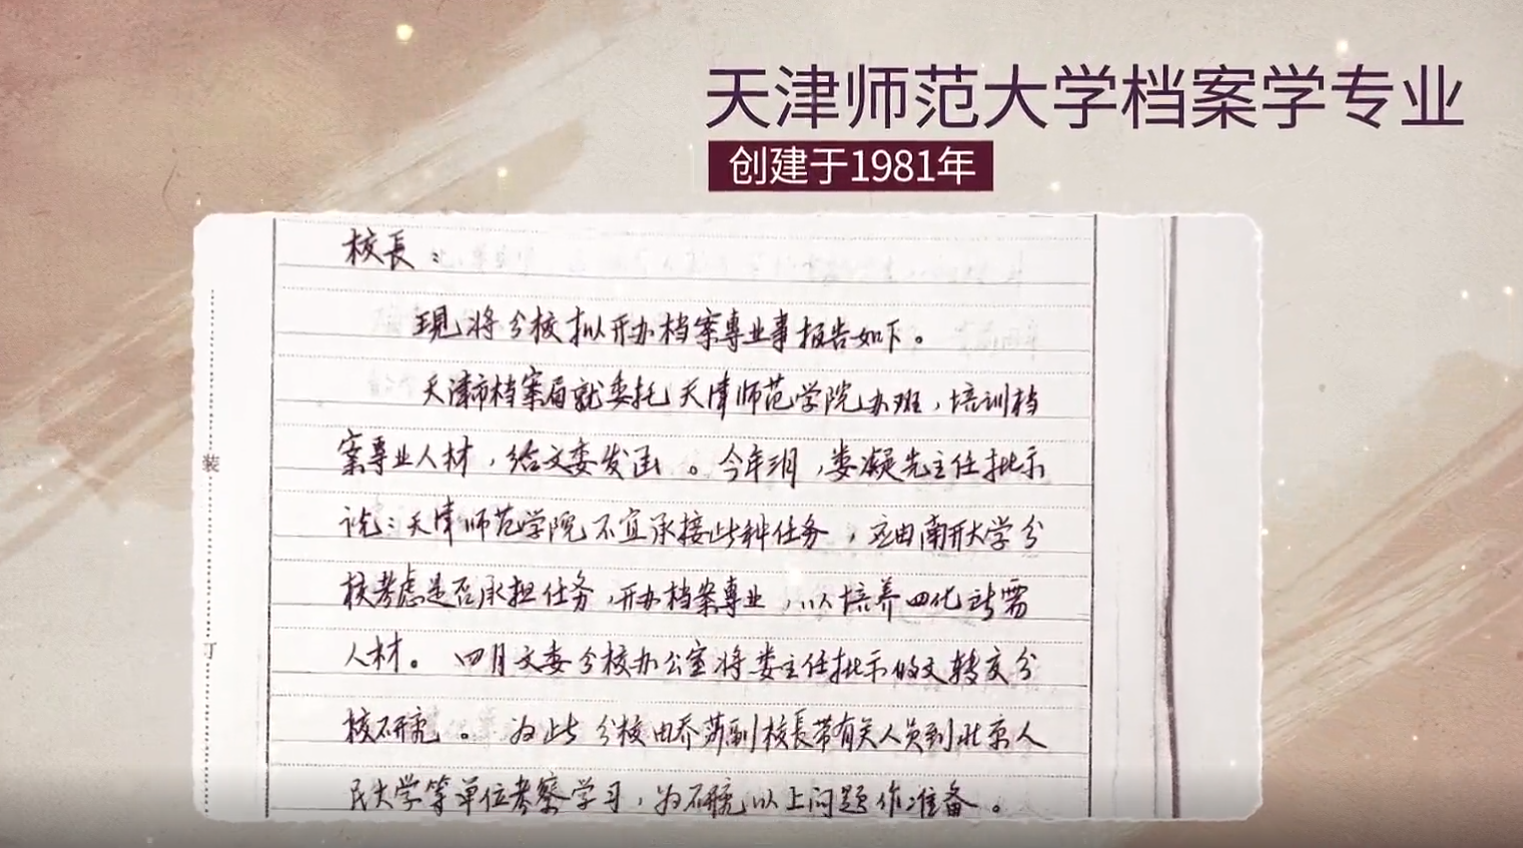 天津师范大学档案学专业
创建于1981年
校長：
现将分校拟开办档案專业事报告如下。
天津市档案局就委托天津师范学院办班，培训档
案專业人材，给文委发函。今年三月，娄凝先主任批示
说：天津师范学院不宜承接此种任务，应由南开大学分
校考虑是否承担任务，开办档案專业，以培养四化所需
人材。四月文委分校办公室将娄主任批示的文转交分
校研究。为此分校由乔莎副校長带有关人员到北京人
民大学等单位考察学习，为研究以上问题作准备。
装
订